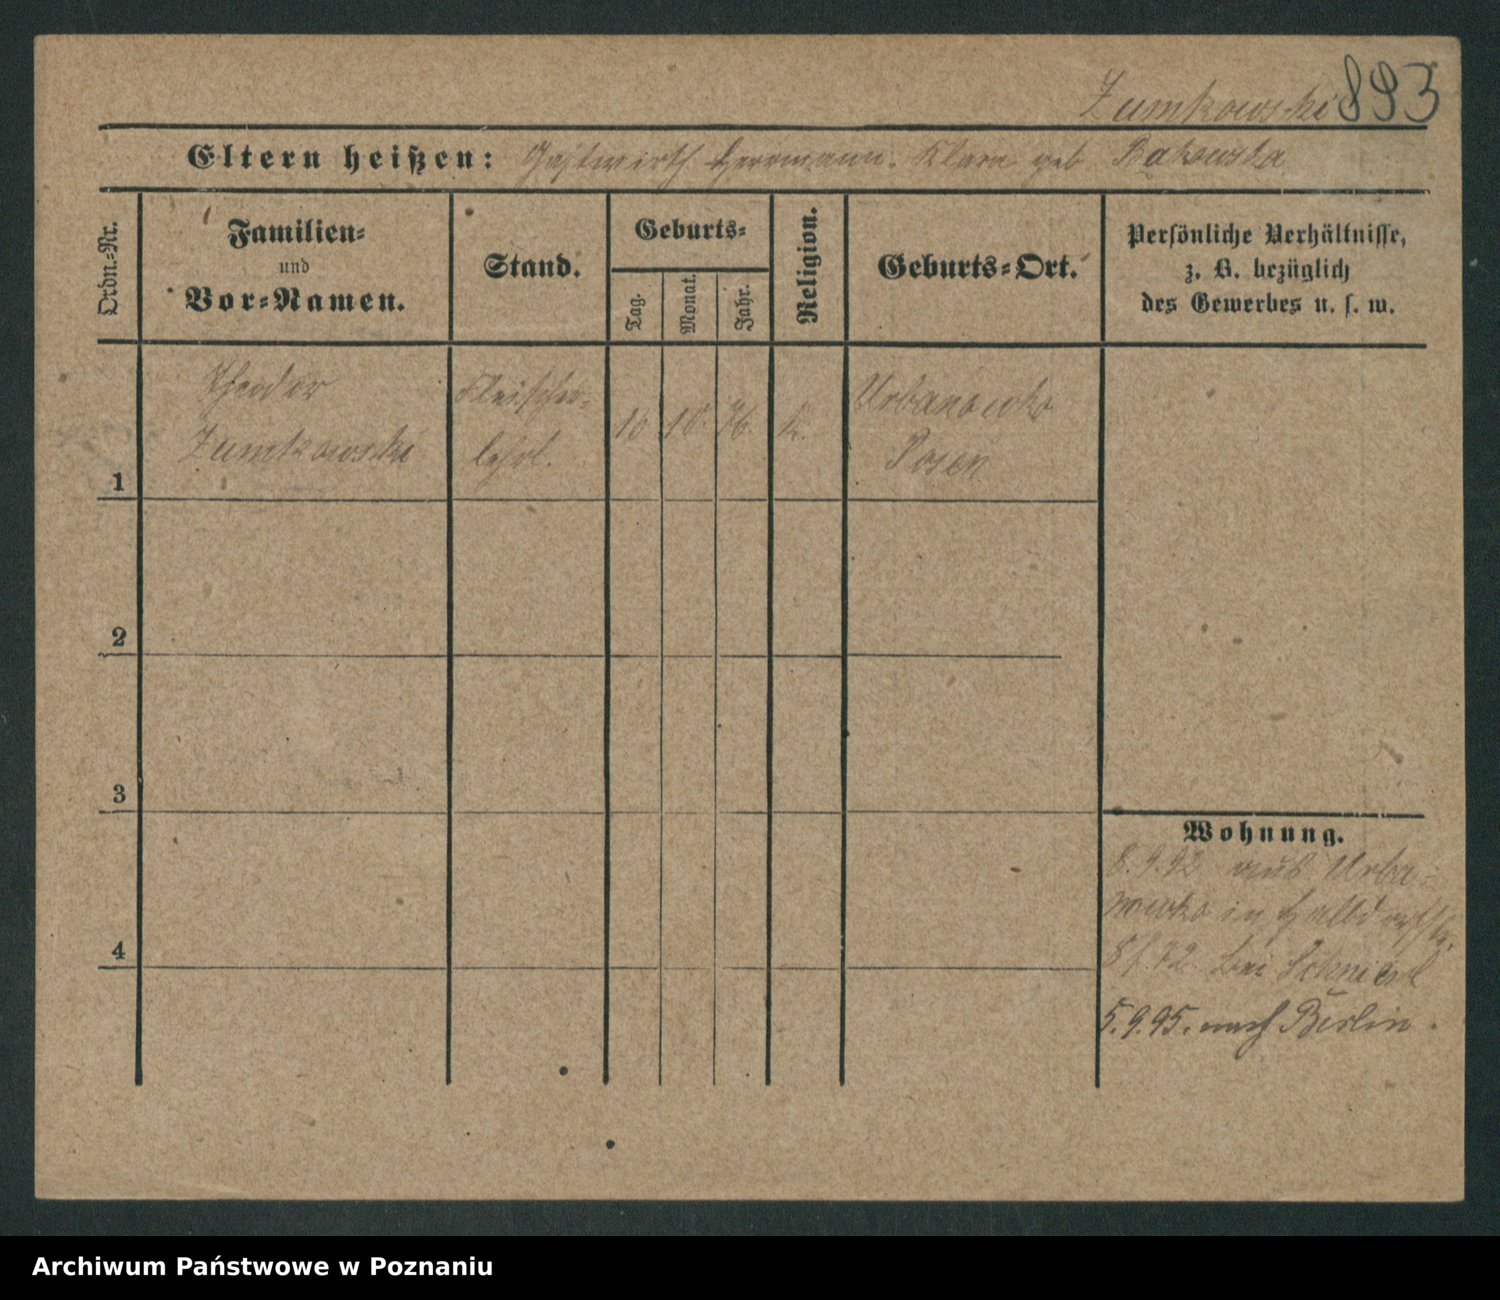 Zumkowski 893
Eltern heißen: Gastwirth Herrmann. Klara geb Bąkowska
Ordn.-Nr.
Familien-
und
Vor-Namen.
Stand.
Geburts-
Tag.
Monat.
Jahr.
Religion.
Geburts-Ort.
Persönliche Verhältnisse,
z. B. bezüglich
des Gewerbes u. s. w.
Theodor
Zumkowski
Fleischer-
lehrl.
10 10. 76. k.
Urbanowko
Posen
1
2
3
4
Wohnung.
8.9.92 aus Urba-
nowko in
bei
5.9.95. nach Berlin.
Archiwum Państwowe w Poznaniu